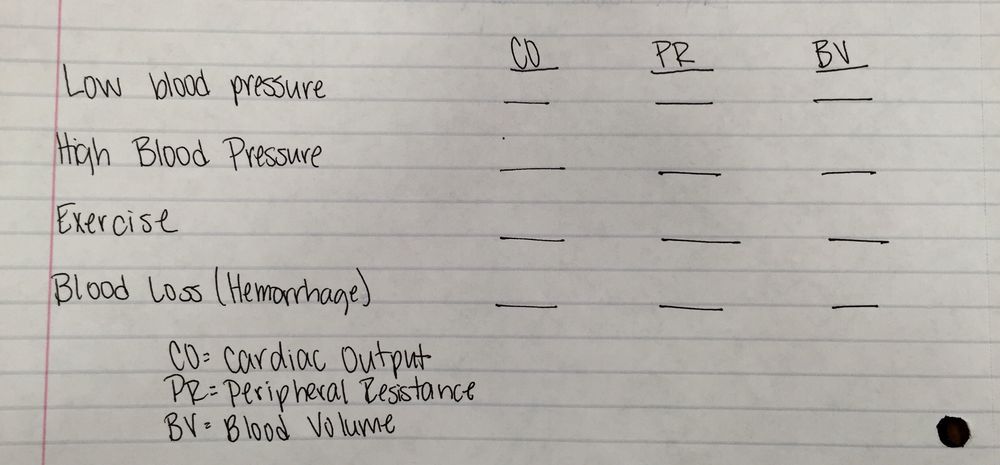 CO PR BV
Low blood pressure
High Blood Pressure
Exercise
Blood Loss (Hemorrhage)
CO= Cardiac Output
PR= Peripheral Resistance
BV= Blood Volume